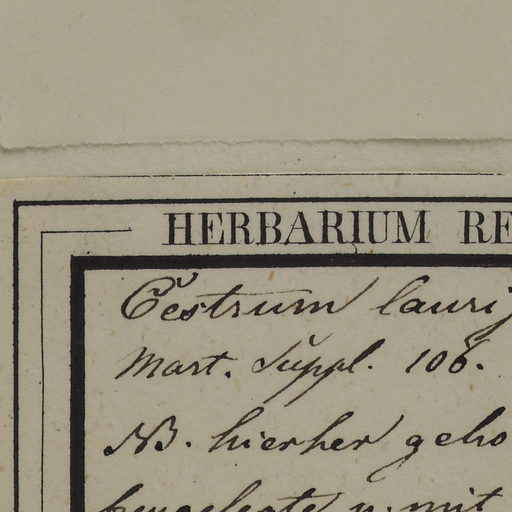 HERBARIUM RE
Cestrum lauri
Mart. Suppl. 106.
NB. hierher geho
u. mit